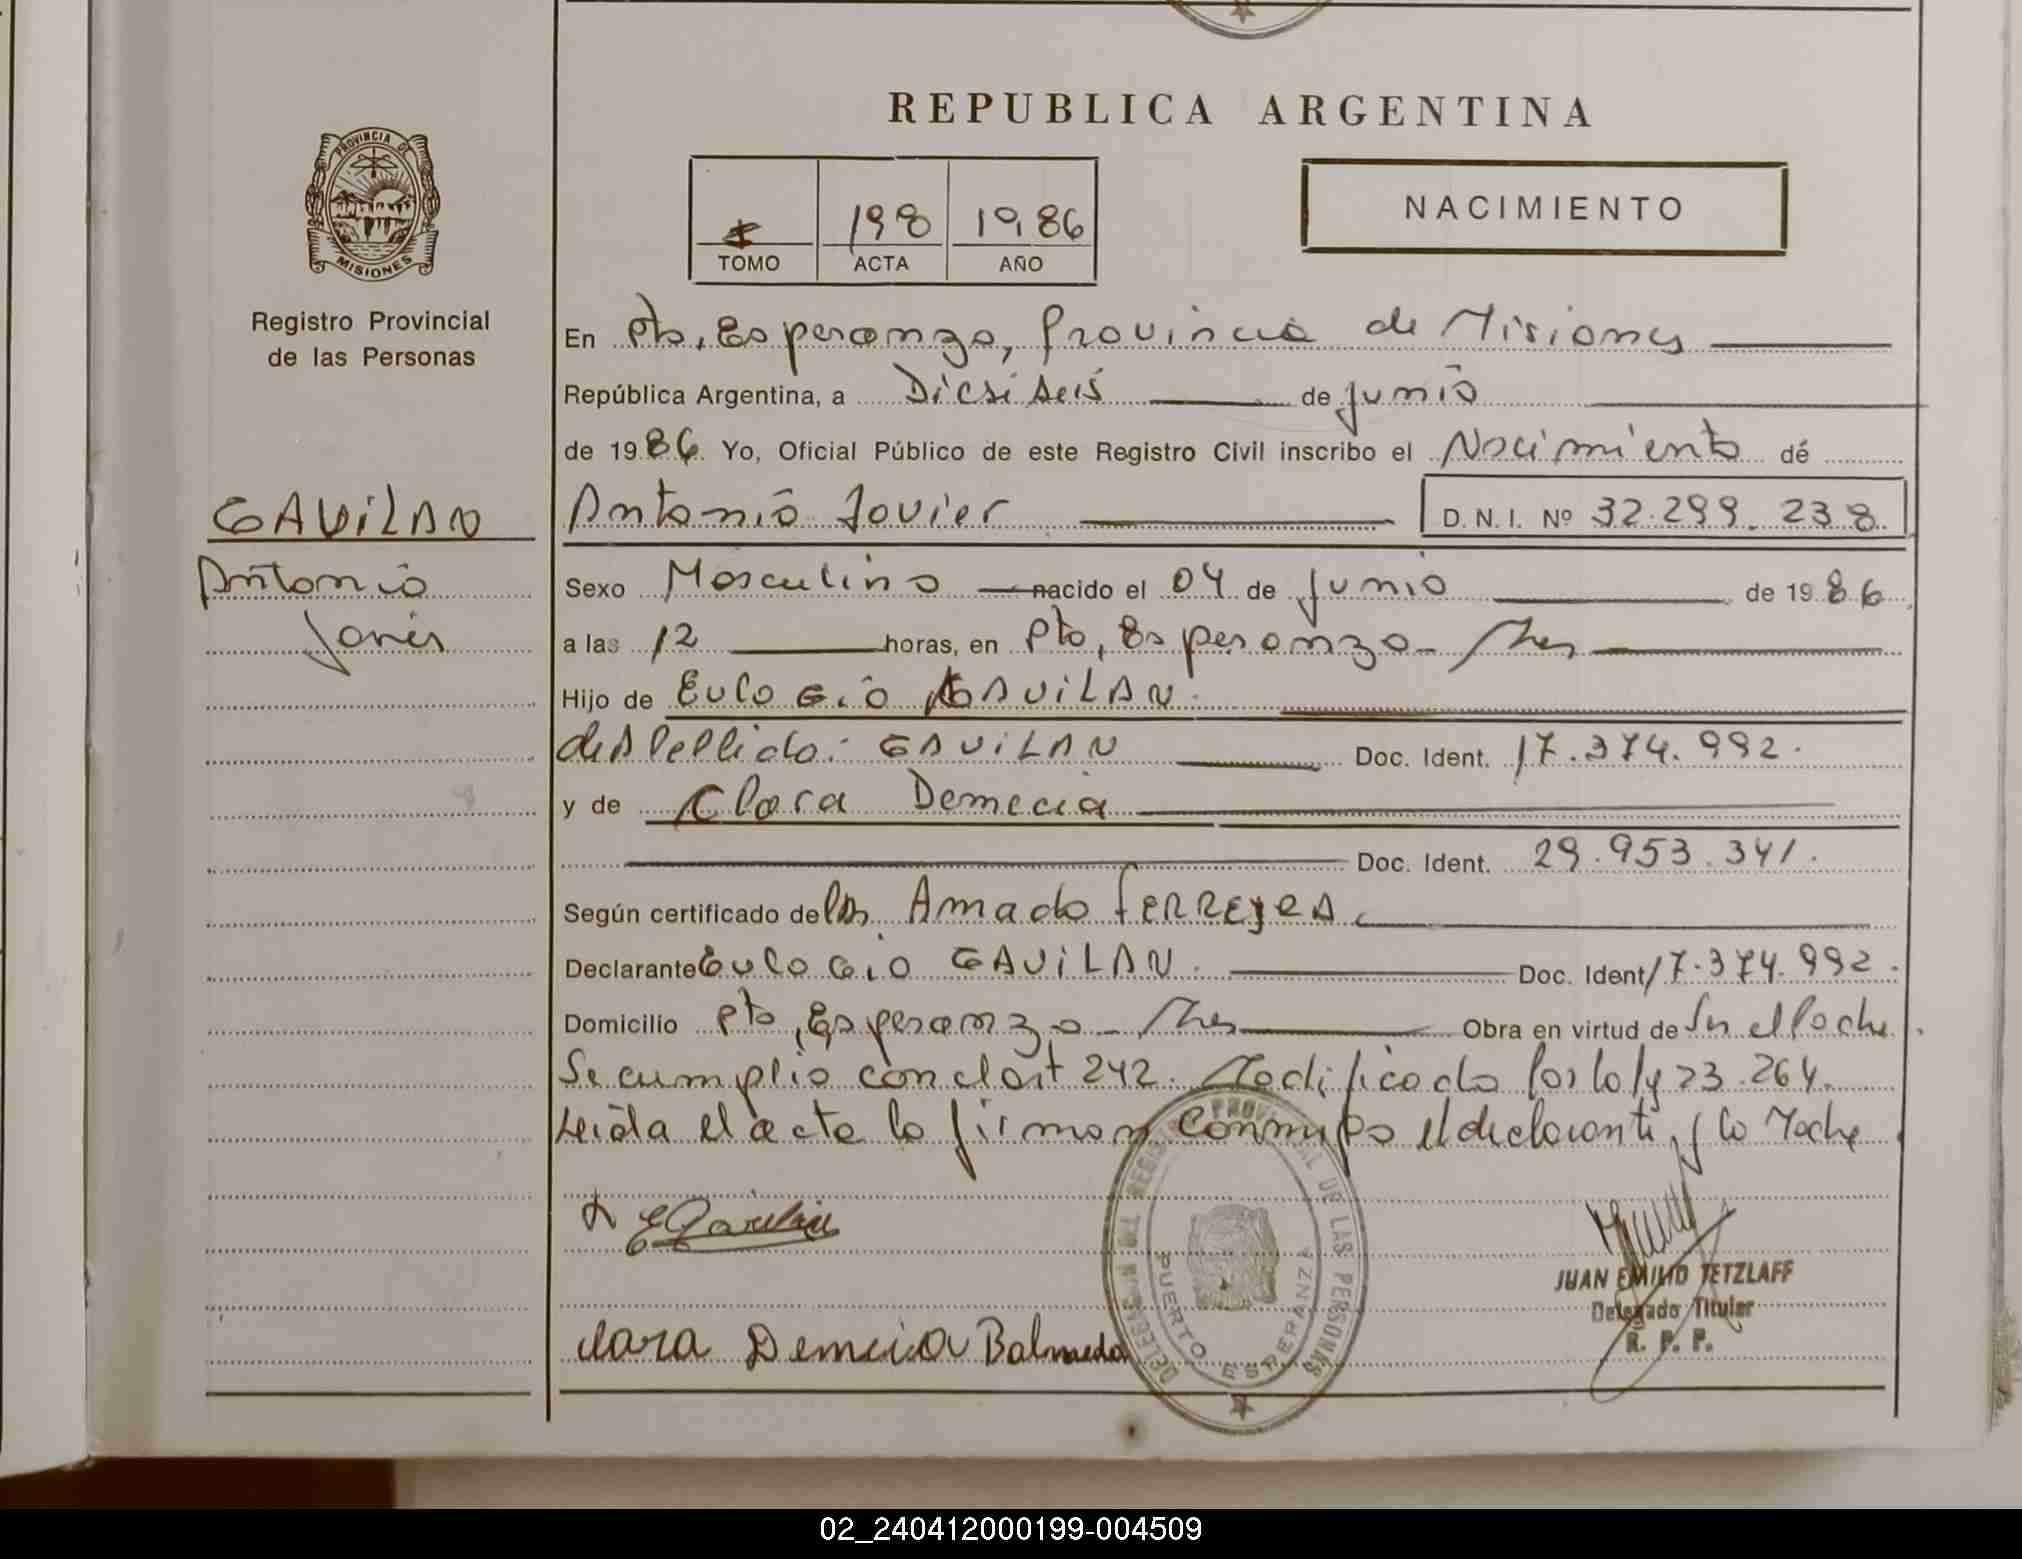 REPUBLICA ARGENTINA
PROVINCIA DE
MISIONES
Registro Provincial
de las Personas
198 1986
TOMO ACTA AÑO
NACIMIENTO
En Pto, Esperanza, Provincia de Misiones
República Argentina, a Diesiseis de junio
de 1986 Yo, Oficial Público de este Registro Civil inscribo el Nacimiento dé
GAVILAN
Antonio Javier D. N. I. Nº 32.299.238
Antonio
Javier
Sexo Masculino nacido el 04 de junio de 1986
a las 12 horas, en Pto, Esperanza - Mnes
Hijo de Eulogio GAVILAN
de Apellido: GAVILAN Doc. Ident. 17.374.992.
y de Clara Demecia
Doc. Ident. 29.953.341.
Según certificado de Amado FERREYRA
Declarante Eulogio GAVILAN. Doc. Ident 17.374.992.
Domicilio Pto, Esperanza - Mnes Obra en virtud de
Se cumplio con el art 242. Modificada por la ley 23.264.
Leida el acta la firman conmigo el declarante, y la Madre
E Gavilan
DELEGACION DEL REGISTRO PROVINCIAL DE LAS PERSONAS
PUERTO ESPERANZA
JUAN EMILIO TETZLAFF
Delegado Titular
R. P. P.
Clara Demecia Balmaceda
02_240412000199-004509